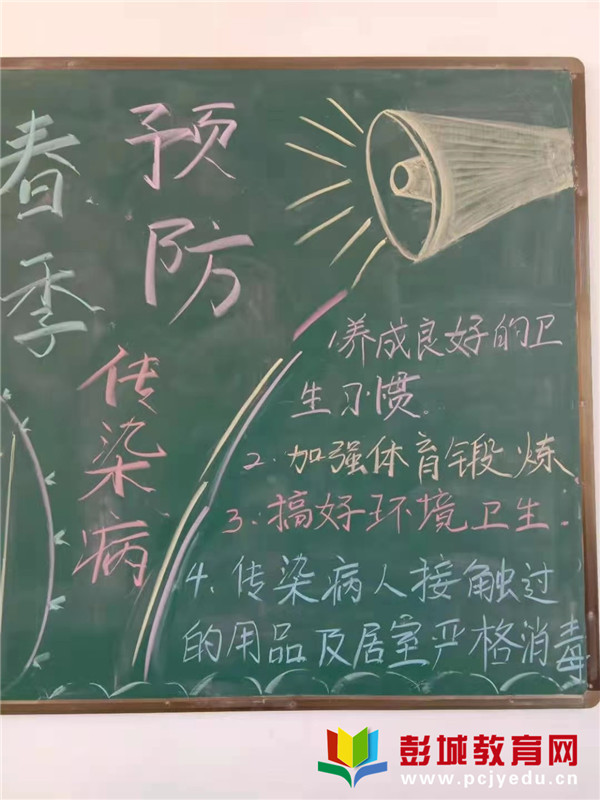 春季
预防
传染病
1.养成良好的卫
生习惯.
2.加强体育锻炼
3.搞好环境卫生.
4.传染病人接触过
的用品及居室严格消毒
彭城教育网
www.pcjyedu.cn